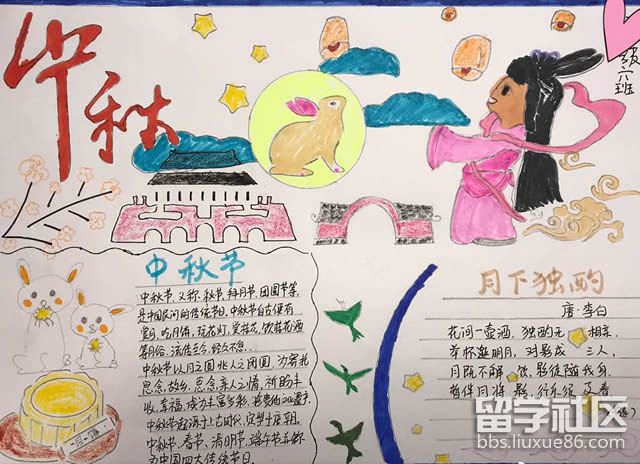 中秋
级六班
中秋节
中秋节，又称秋节、拜月节、团圆节等，
是中国民间的传统节日。中秋节自古便有
赏月、吃月饼、玩花灯、赏桂花、饮桂花酒
等习俗，流传至今，经久不息。
中秋节以月之圆兆人之团圆，为寄托
思念故乡，思念亲人之情，祈盼丰
收、幸福，成为丰富多彩、
中秋节起源于上古时代，定型于唐朝
中秋节、春节、清明节、端午节并称
为中国四大传统节日。
月下独酌
唐·李白
花间一壶酒，独酌无相亲。
举杯邀明月，对影成三人。
月既不解饮，影徒随我身。
暂伴月将影，行乐须及春
留学社区
bbs.liuxue86.com